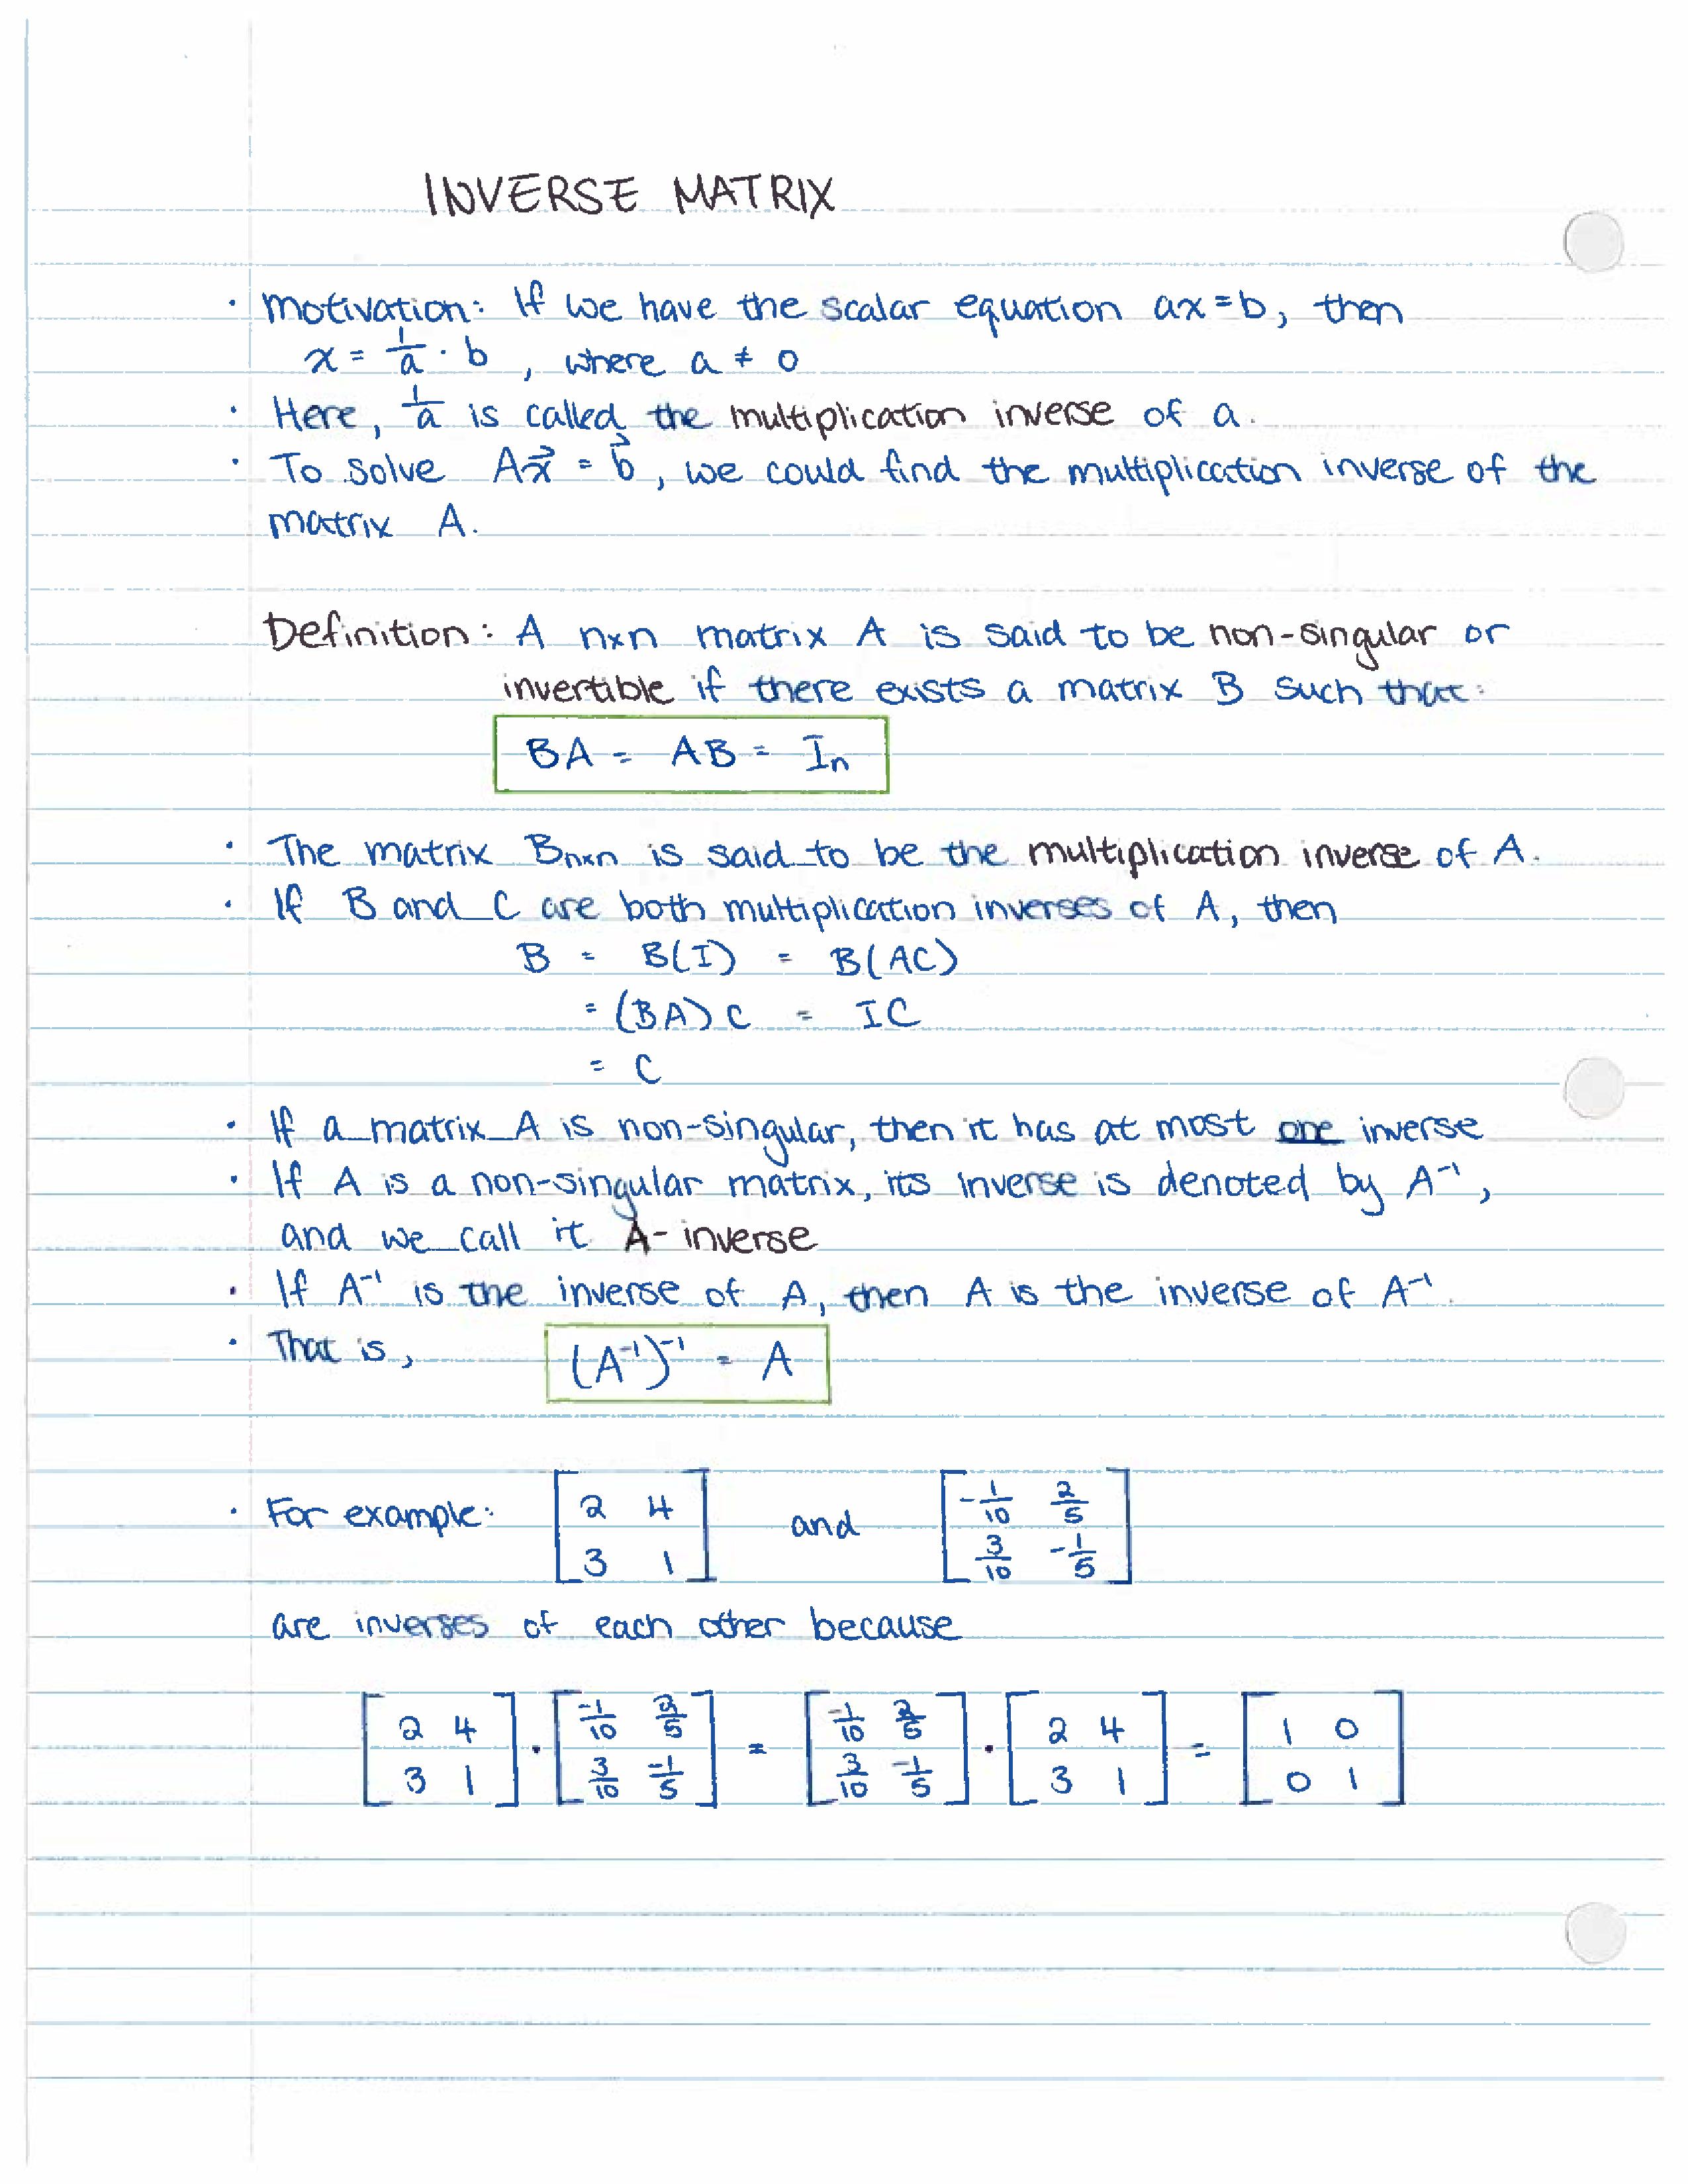 INVERSE MATRIX
· Motivation: If we have the scalar equation ax=b, then
x = 1/a · b, where a ≠ 0
· Here, 1/a is called the multiplication inverse of a.
· To solve Ax⃗ = b⃗, we could find the multiplication inverse of the
matrix A.
Definition: A n×n matrix A is said to be non-singular or
invertible if there exists a matrix B such that:
BA = AB = Iₙ
· The matrix Bₙₓₙ is said to be the multiplication inverse of A.
· If B and C are both multiplication inverses of A, then
B = B(I) = B(AC)
= (BA)C = IC
= C
· If a matrix A is non-singular, then it has at most one inverse
· If A is a non-singular matrix, its inverse is denoted by A⁻¹,
and we call it A-inverse
· If A⁻¹ is the inverse of A, then A is the inverse of A⁻¹.
· That is, (A⁻¹)⁻¹ = A
· For example: [2 4; 3 1] and [-1/10 2/5; 3/10 -1/5]
are inverses of each other because
[2 4; 3 1] · [-1/10 2/5; 3/10 -1/5] = [-1/10 2/5; 3/10 -1/5] · [2 4; 3 1] = [1 0; 0 1]